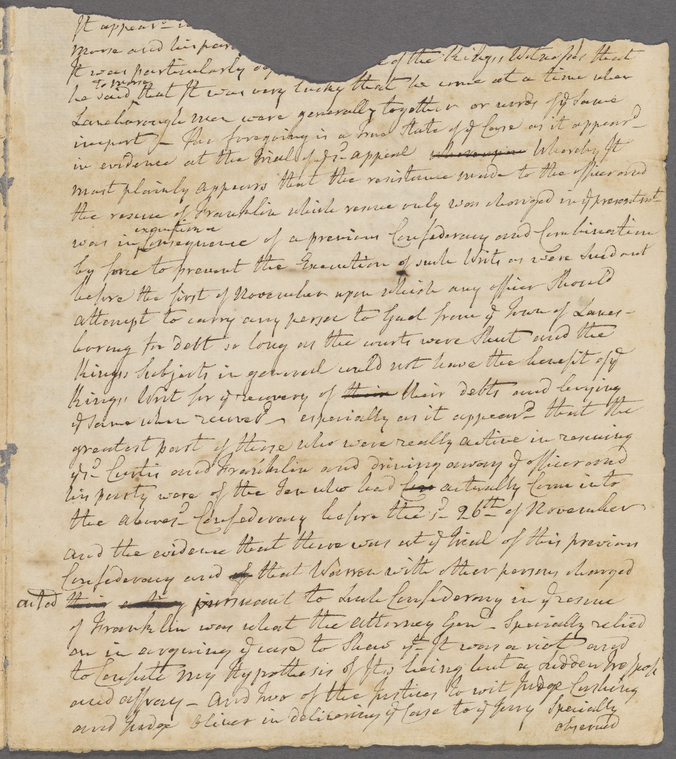 It appear'd
morse and his par
It was particularly of the Kings Witnesses that
to morse
he said that It was very lucky that he come at a time when
Lanesborough men were generally together or words of ye same
import – The foregoing is a True State of ye Case as it appear'd
in evidence at the Trial of ys appeal Whereby It
most plainly appears that the resistance made to the officer and
the rescue of Franklin which rescue only was charged in ye presentmt
execution &
was in Consequence of a previous Confederacy and Combination
by force to prevent the Execution of such Writs as were sued out
before the first of November upon which any officer Should
attempt to carry any person to Gaol from ye Town of Lanes-
borong for Debt so long as the courts were Shut and the
Kings Subjects in general could not have the benefit of ye
Kings Writ for ye recovery of their their debts and levying
ye same when recover'd – especially as it appear'd that the
greatest part of those who were really active in rescuing
ys Curtis and Franklin and driving away ye officer and
his party were of the men who had actually Come into
the aboves'd Confederacy before the sd 26th of November
and the evidence that there was at ye trial of this previous
Confederacy and of that Warren with other persons charged
acted their acting pursuant to such Confederacy in ye rescue
of Franklin was what the attorney Genl Specially relied
on in arguing ye case to Shew yt It was a riot and
to Confute my Hypothesis of Its being but a sudden
and affray – and two of the Justices to wit Judge Cushing
and Judge Oliver in delivering ye Case to ye Jury Specially
observed